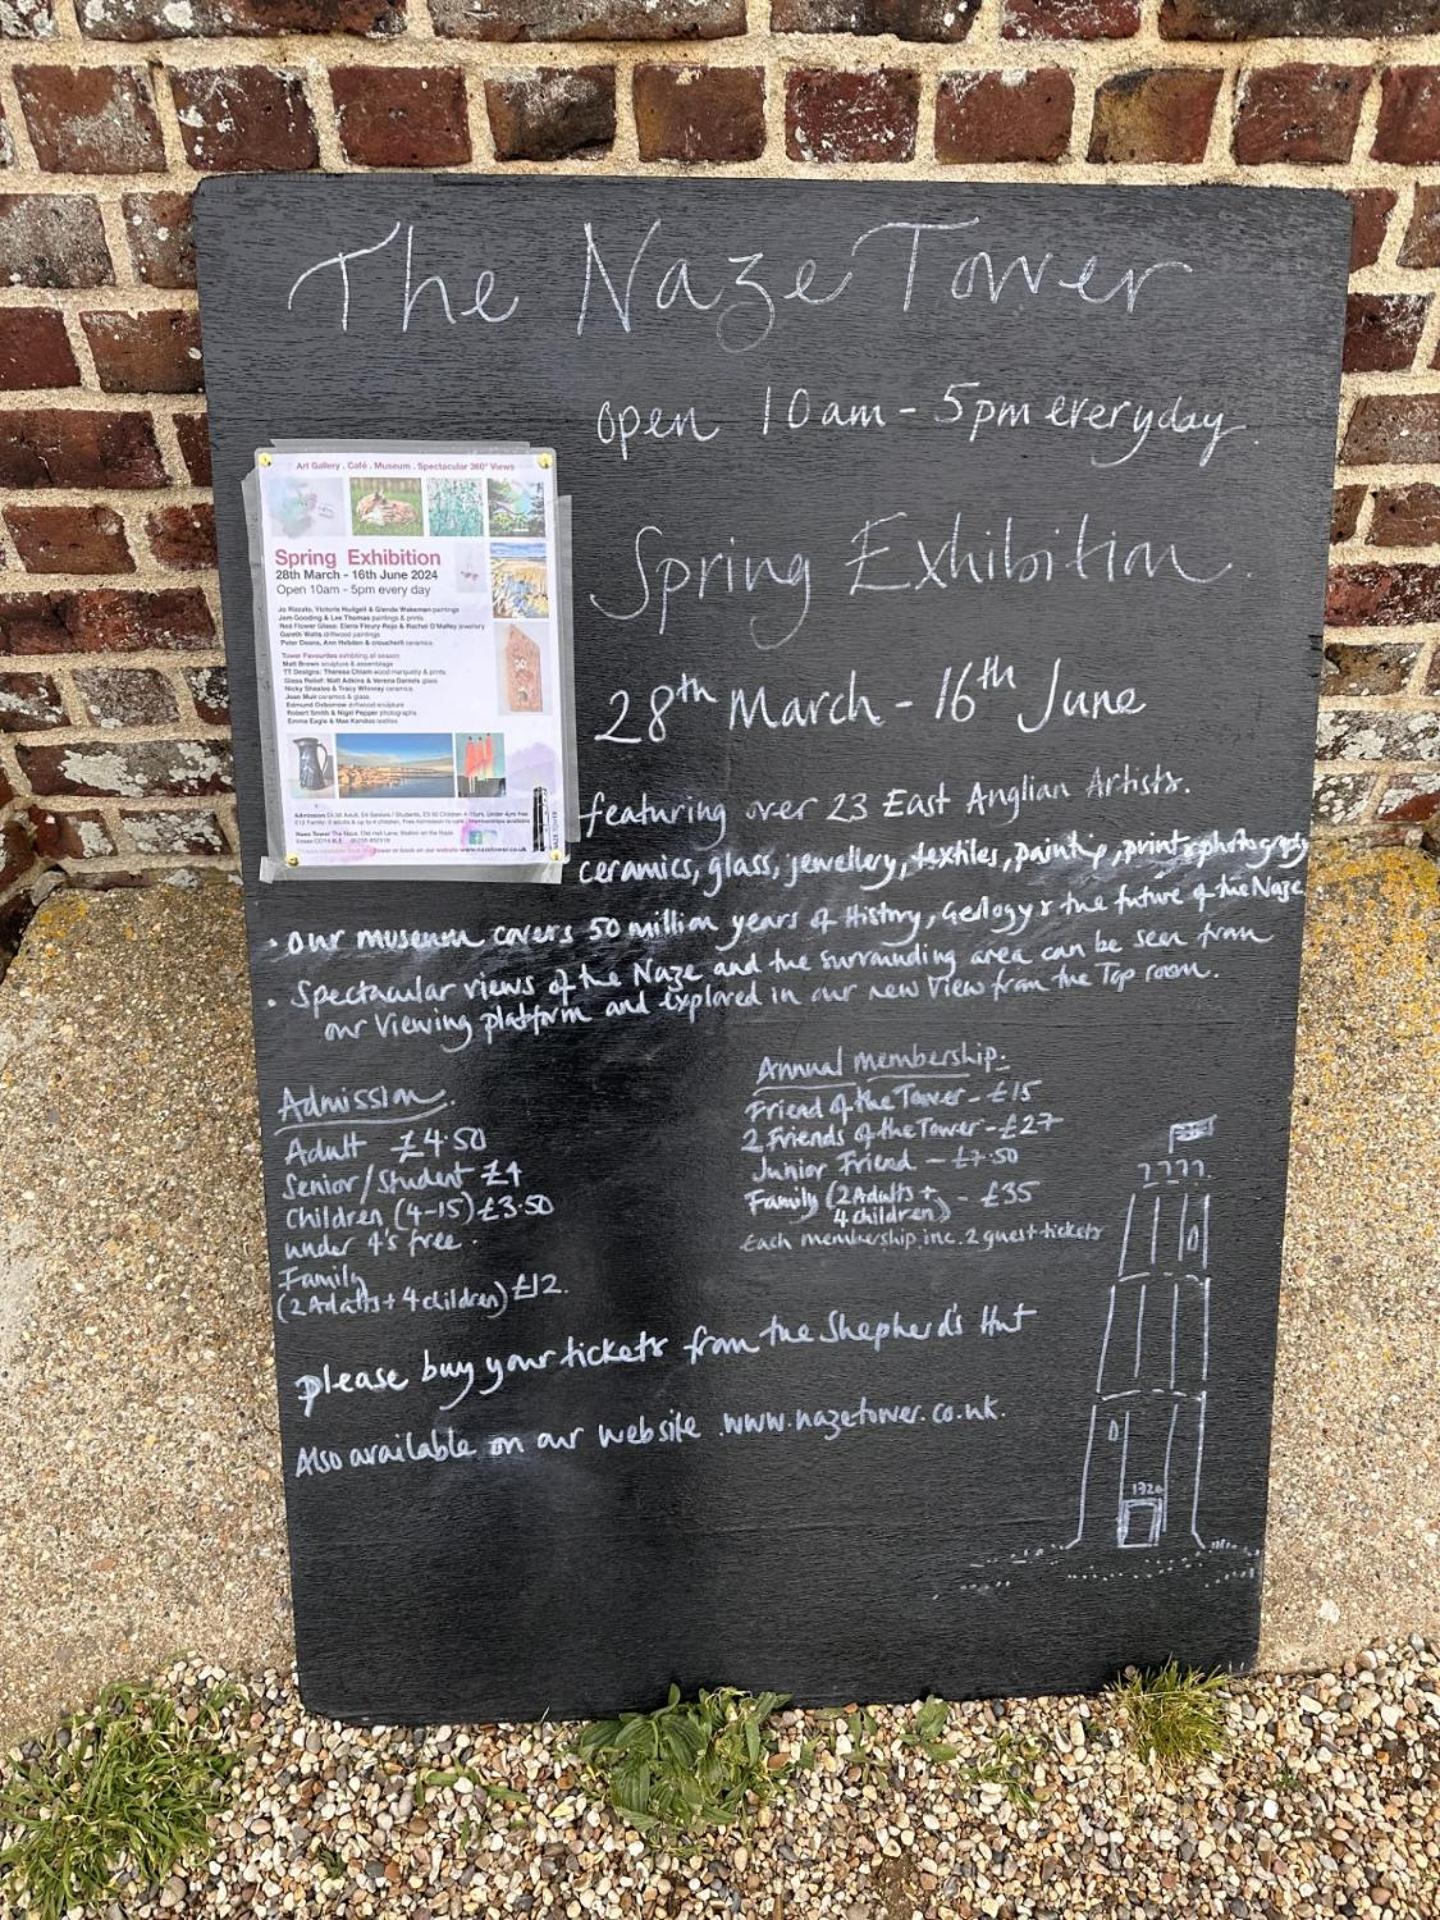 The Naze Tower
open 10am - 5pm everyday.
Art Gallery . Café . Museum . Spectacular 360° Views
Spring Exhibition
28th March - 16th June 2024
Open 10am - 5pm every day
Jo Rizzato, Victoria Hudgell & Glenda Wakeman paintings
Jem Gooding & Lee Thomas paintings & prints
Red Flower Glass: Elena Fleury-Rojo & Rachel O'Malley jewellery
Gareth Watts driftwood paintings
Peter Deans, Ann Hebden & croucherli ceramics
Tower Favourites exhibiting all season
Matt Brown sculpture & assemblage
TT Designs: Theresa Chiam wood marquetry & prints
Glass Relief: Matt Adkins & Verena Daniels glass
Nicky Sheales & Tracy Whinney ceramics
Joan Muir ceramics & glass
Edmund Osborrow driftwood sculpture
Robert Smith & Nigel Pepper photographs
Emma Eagle & Mae Kandoo textiles
Admission £4.50 Adult, £4 Seniors / Students, £3.50 Children 4-15yrs, Under 4yrs free
£12 Family: 2 adults & up to 4 children, Free Admission to café
Naze Tower The Naze, Old Hall Lane, Walton on the Naze
Essex CO14 8LE
or book on our website www.nazetower.co.uk
NAZE TOWER
Spring Exhibition.
28th March - 16th June
featuring over 23 East Anglian Artists.
ceramics, glass, jewellery, textiles, painting, print & photography
• our museum covers 50 million years of History, Geology & the future of the Naze
• Spectacular views of the Naze and the surrounding area can be seen from
our Viewing platform and explored in our new View from the Top room.
Admission.
Adult £4.50
Senior/Student £4
Children (4-15) £3.50
under 4's free.
Family
(2 Adults + 4 children) £12.
Annual Membership.
Friend of the Tower - £15
2 Friends of the Tower - £27
Junior Friend - £7.50
Family (2 Adults + 4 children) - £35
Each membership inc. 2 guest tickets
please buy your tickets from the Shepherd's Hut
Also available on our website www.nazetower.co.uk.
1720